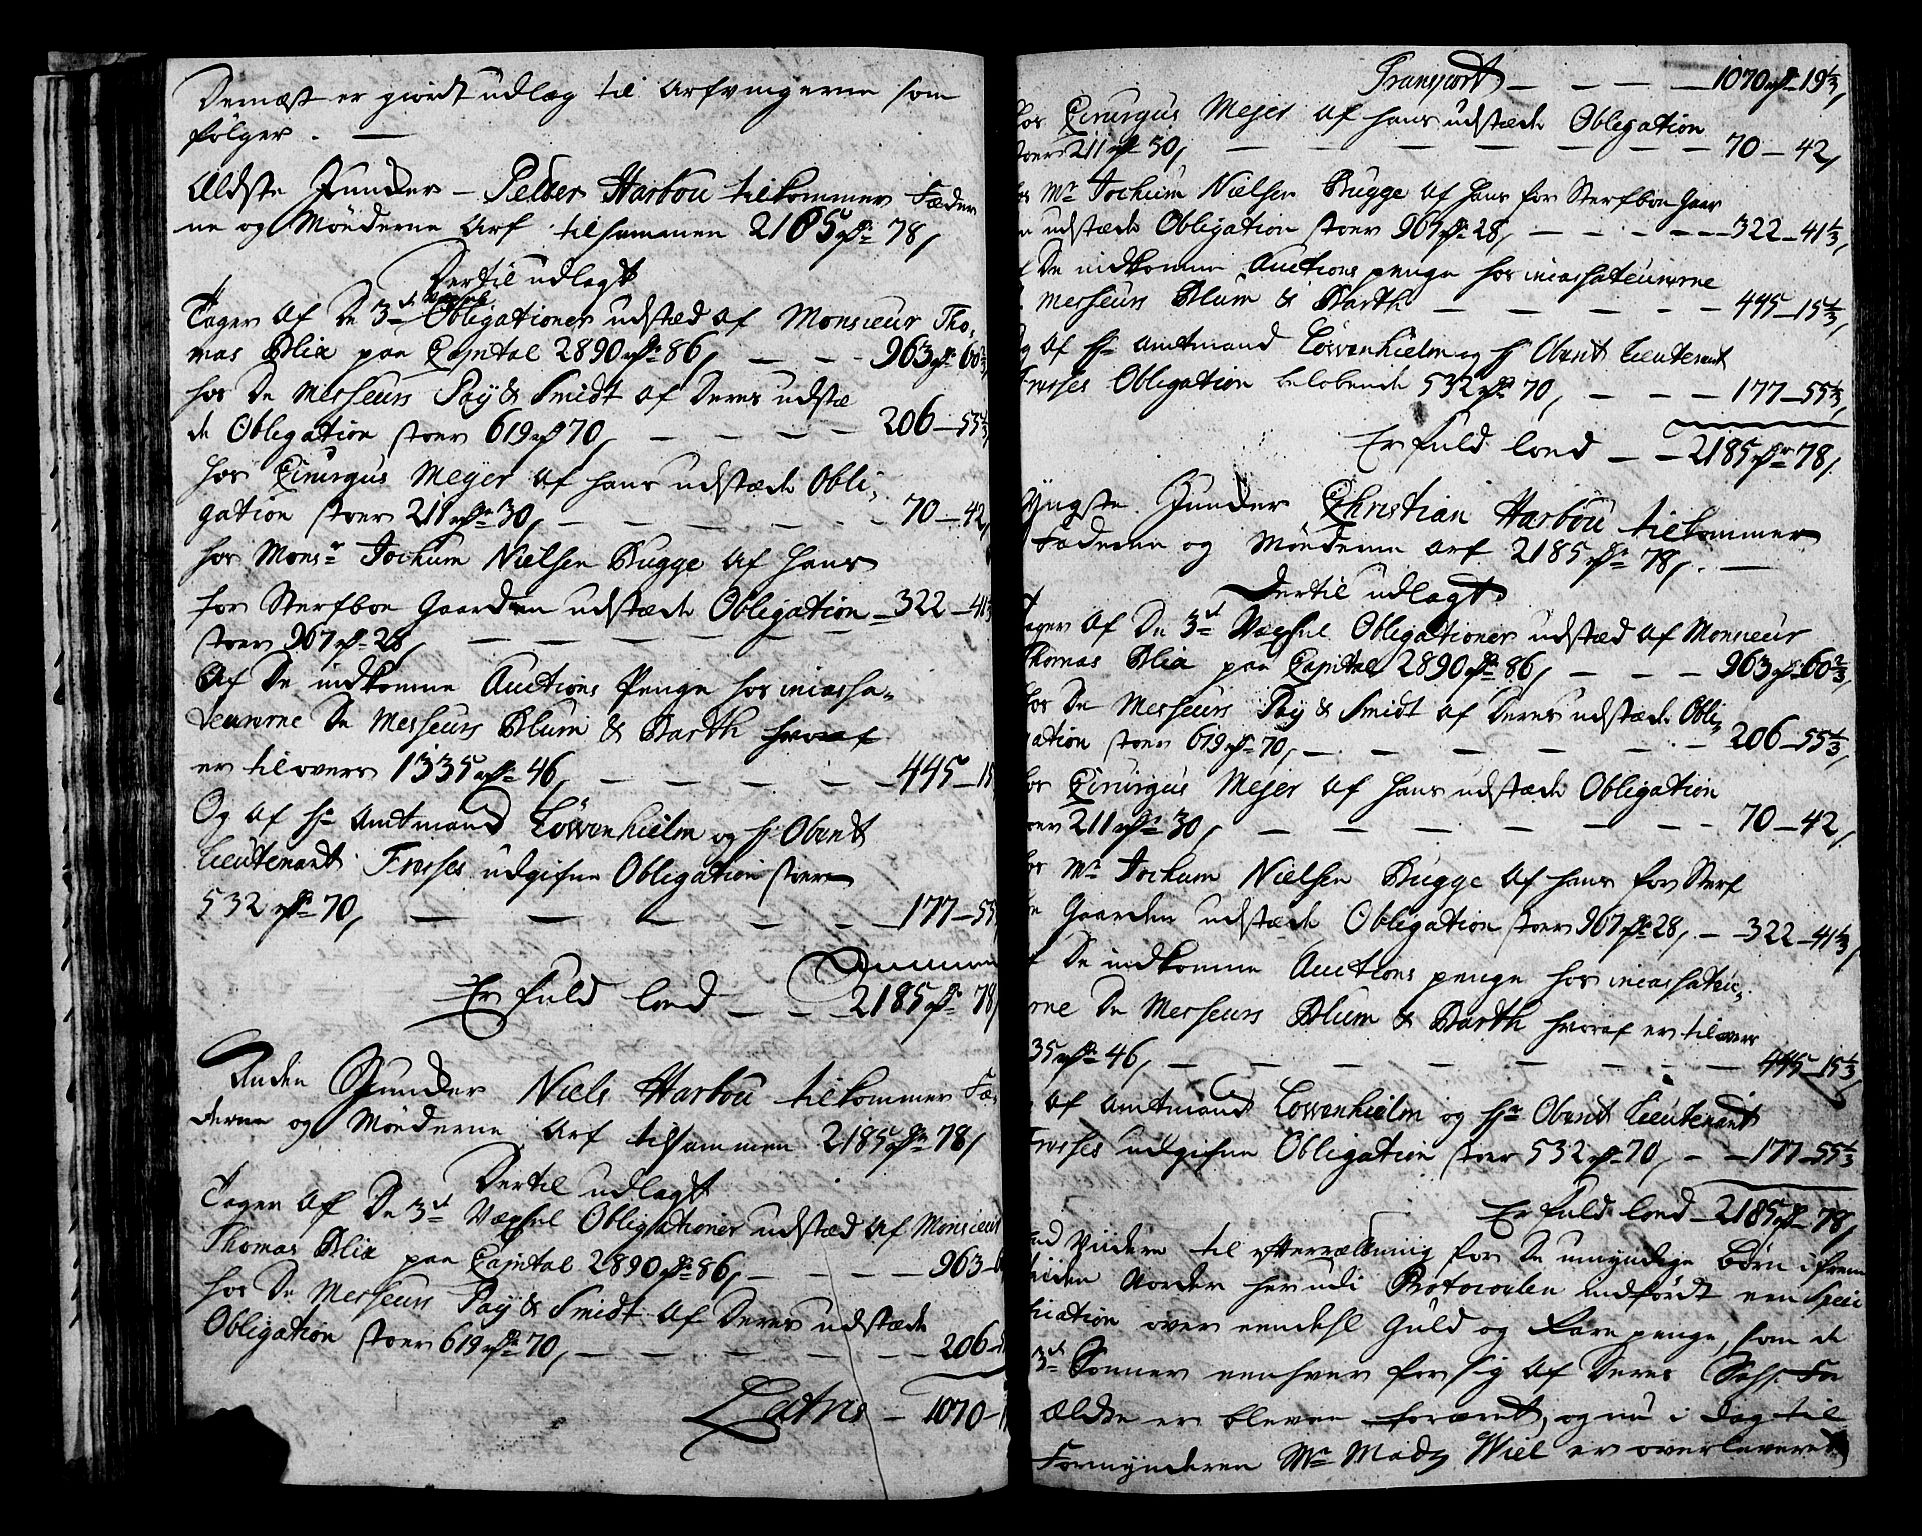 Dernæst er giordt udlæg til Arfvingerne som
følger. —
Ældste Junder — Peder Harbou tilkommer Fæder
ne og Mønderne Arf tilsammen 2185 rdr 78,
Dertil udlagt
Tager af De 3de Vexsul Obligationer udstæd af Monsieur Tho,
mas Blix paa Capital 2890 rdr 86, — — — 963 rdr 60 2/3,
hos De Messeurs Pay & Smidt af Deres udstæ
de Obligation stoer 619 rdr 70, — — — 206 — 55 1/3,
hos Cirurgus Meyer af hans udstæde Obli,
gation stoer 211 rdr 30, — — — 70 — 42,
hos Monsr Jochum Nielsen Bugge af hans
for Sterfboe Gaarden udstæde Obligation — 322 — 41 1/3
stoer 967 rdr 28, — — —
Af De indkomne Auctions Penge hos incassa,,
teurerne De Messeurs Blum & Barth hvoraf
er tilovers 1335 rdr 46, — — — 445 — 15
Og af Hr Amtmand Löwenhielm og Hr Oberst
Lieutenant Froises udgifne Obligation stoer
532 rdr 70, — — — 177 — 55
Summa
Er fuld loed — — 2185 rdr 78,
Anden Junder Niels Harbou tilkommer Fæ,
derne og Mønderne Arf tilsammen 2185 rdr 78,
Dertil udlagt
Tager af De 3de Vexsul Obligationer udstæd af Monsieur
Thomas Blix paa Capital 2890 rdr 86, — — — 963 — 6
hos De Messeurs Pay & Smidt af Deres udstæde
Obligation stoer 619 rdr 70, — — — 206 —
Lateris — 1070 — 1
Transport — — — 1070 rdr 19 1/3,
hos Cirurgus Mejer af hans udstæde Obligation
stoer 211 rdr 50, — — — 70 — 42,
hos Mr Jochum Nielsen Bugge af hans for Sterfboe Gaar
n udstæde Obligation stoer 967 rdr 28, — — — 322 — 41 1/3,
f De indkomne Auctions penge hos incassateurerne
Messeurs Blum & Barth — — — 445 — 15 1/3,
Og af Hr Amtmand Löwenhielm og Hr Oberst Lieutenant
Froises Obligation beløbende 532 rdr 70, — — — 177 — 55 1/3,
Er fuld loed — — 2185 rdr 78,
Yngste Junder Christian Harbou tilkommer
Fæderne og Mønderne Arf 2185 rdr 78, —
Dertil udlagt
Tager af De 3de Vexsul Obligationer udstæd af Monsieur
Thomas Blix paa Capital 2890 rdr 86, — — — 963 rdr 60 2/3,
hos De Messeurs Pay & Smidt af Deres udstæde Obli,
gation stoer 619 rdr 70, — — — 206 — 55 1/3,
hos Cirurgus Mejer af hans udstæde Obligation
stoer 211 rdr 30, — — — 70 — 42,
hos Mr Jochum Nielsen Bugge af hans for Sterf
be Gaarden udstæde Obligation stoer 967 rdr 28, — 322 — 41 1/3,
f De indkomne Auctions penge hos incassateu,
rne De Messeurs Blum & Barth hvoraf er tilovers
35 rdr 46, — — — 445 — 15 1/3,
af Amtmand Löwenhielm og Hr Oberst Lieutenant
Froises udgifne Obligation stoer 532 rdr 70, — — 177 — 55 1/3
Er fuld loed — 2185 rdr 78,
videre til efterretning for De umyndige børn i frem
tiden vorder herudi Protocolen indfördt een Speci
fication over eendehl Guld og Rare penge, som de
3de Sønner eenhver for sig af Deres Sahl. For
ældre er bleven foræret, og nu i dag til
Formynderen Mr Madz Wiel er overleveret